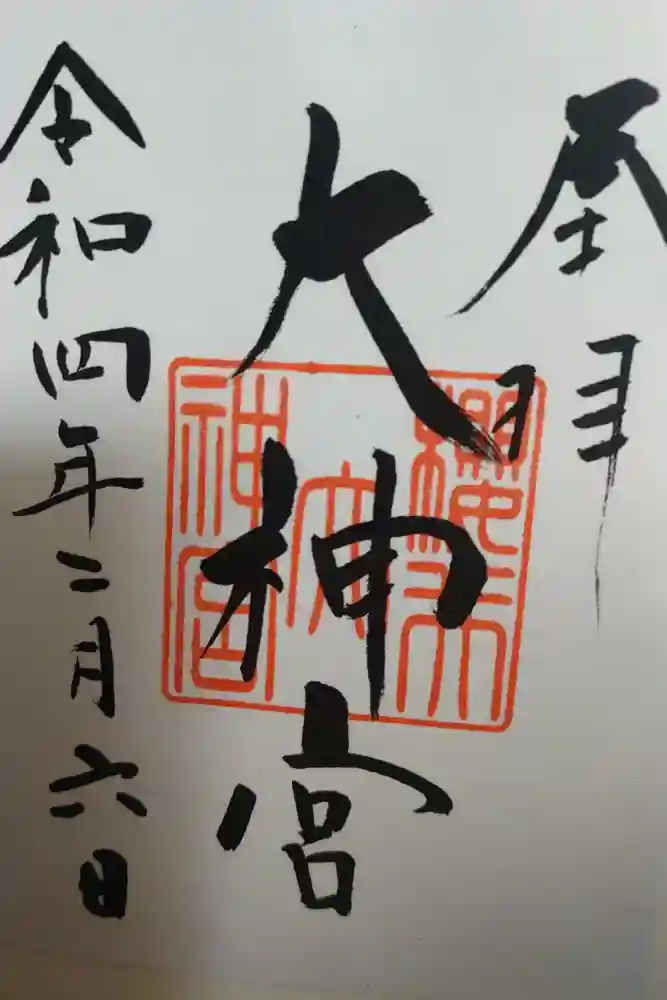 奉拝
大神宮
令和四年二月六日